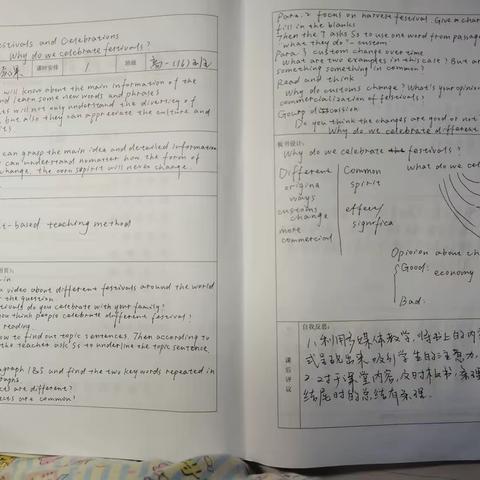 estivals and Celebrations
Why do we celebrate festivals?
课时安排 1 班级 高一(16)
will know about the main information of the
and learn some new words and phrases
es will not only understand the diversity of
, but also they can appreciate the culture and
ts.
can grasp the main idea and detailed information
can understand nomatter how the form of
change, the corn spirit will never change.
t-based teaching method
in
a video about different festivals around the world
r the question
tivals do you celebrate with your family?
you think people celebrate different festival?
reading
how to find out topic sentences. Then according to
the teacher ask Ss to underline the topic sentence
aragraph 1&5 and find the two keywords repeated in
raphs.
cts are different?
ects are common?
Para. 2 focus on harvest festival. Give a char
fill in the blanks
Then the T asks Ss to use one word from passage
"what they do" - custom
Para 3 custom change over time
What are two examples in this case? But ar
something something in common?
Read and think
Why do customs change? What's your opinion
commercialization of felstivals?
Gourp discusion
Do you think the changes are good or not
Why do we celebrate different
板书设计:
Why do we celebrate the festivals?
Different Common What do we cel
origins spirit
ways
customs effere/
change significa
more
commercial
Opioion about cha
Good: economy
Bad:
课后评议
自我反思:
1、利用多媒体教学,将书上的内
式呈现出来,吸引学生的注意力,
2、对于课堂内容,及时板书,条理
结尾时的总结有条理.